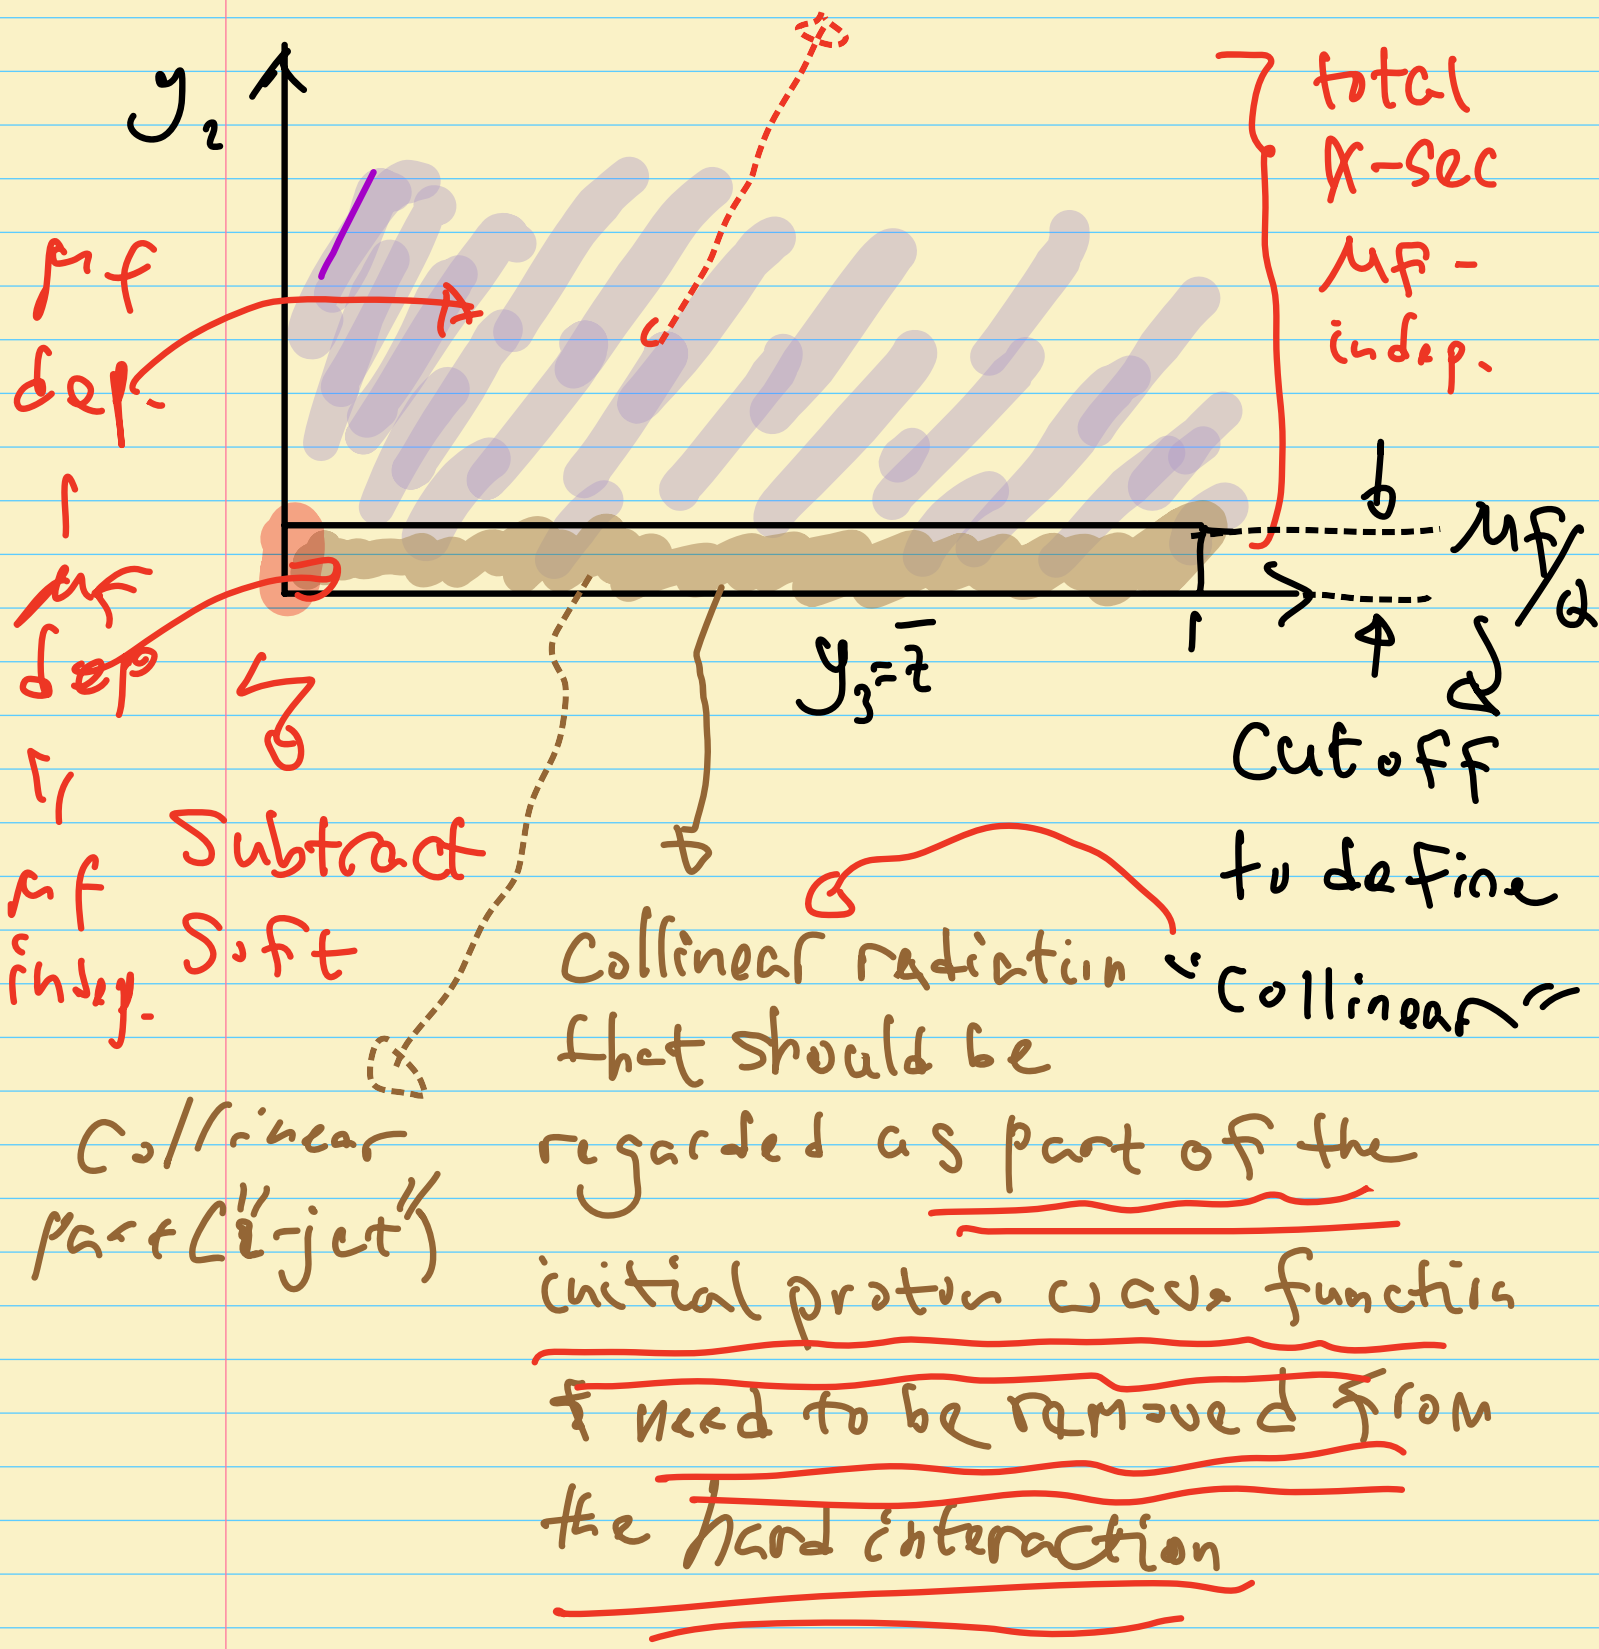 y₂
total
X-sec
μF-
indep.
μf
dep.
μF
dep
μf
indep.
μF/Q
1
y₃=z̄
Cutoff
to define
"Collinear"
Subtract
Soft
Collinear radiation
that should be
regarded as part of the
initial proton wave function
& need to be removed from
the hard interaction
Collinear
part("2-jet")